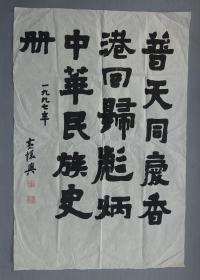 普天同慶香
港回歸彪炳
中華民族史
册
一九九七年